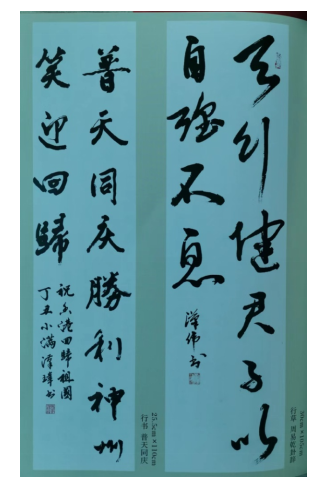 天行健君子以
自强不息
泽伟书
行草 周易乾卦辞
普天同庆胜利神州
笑迎回归
祝香港回归祖国
丁丑小满泽玮书
25.5cm*110cm
行书 普天同庆